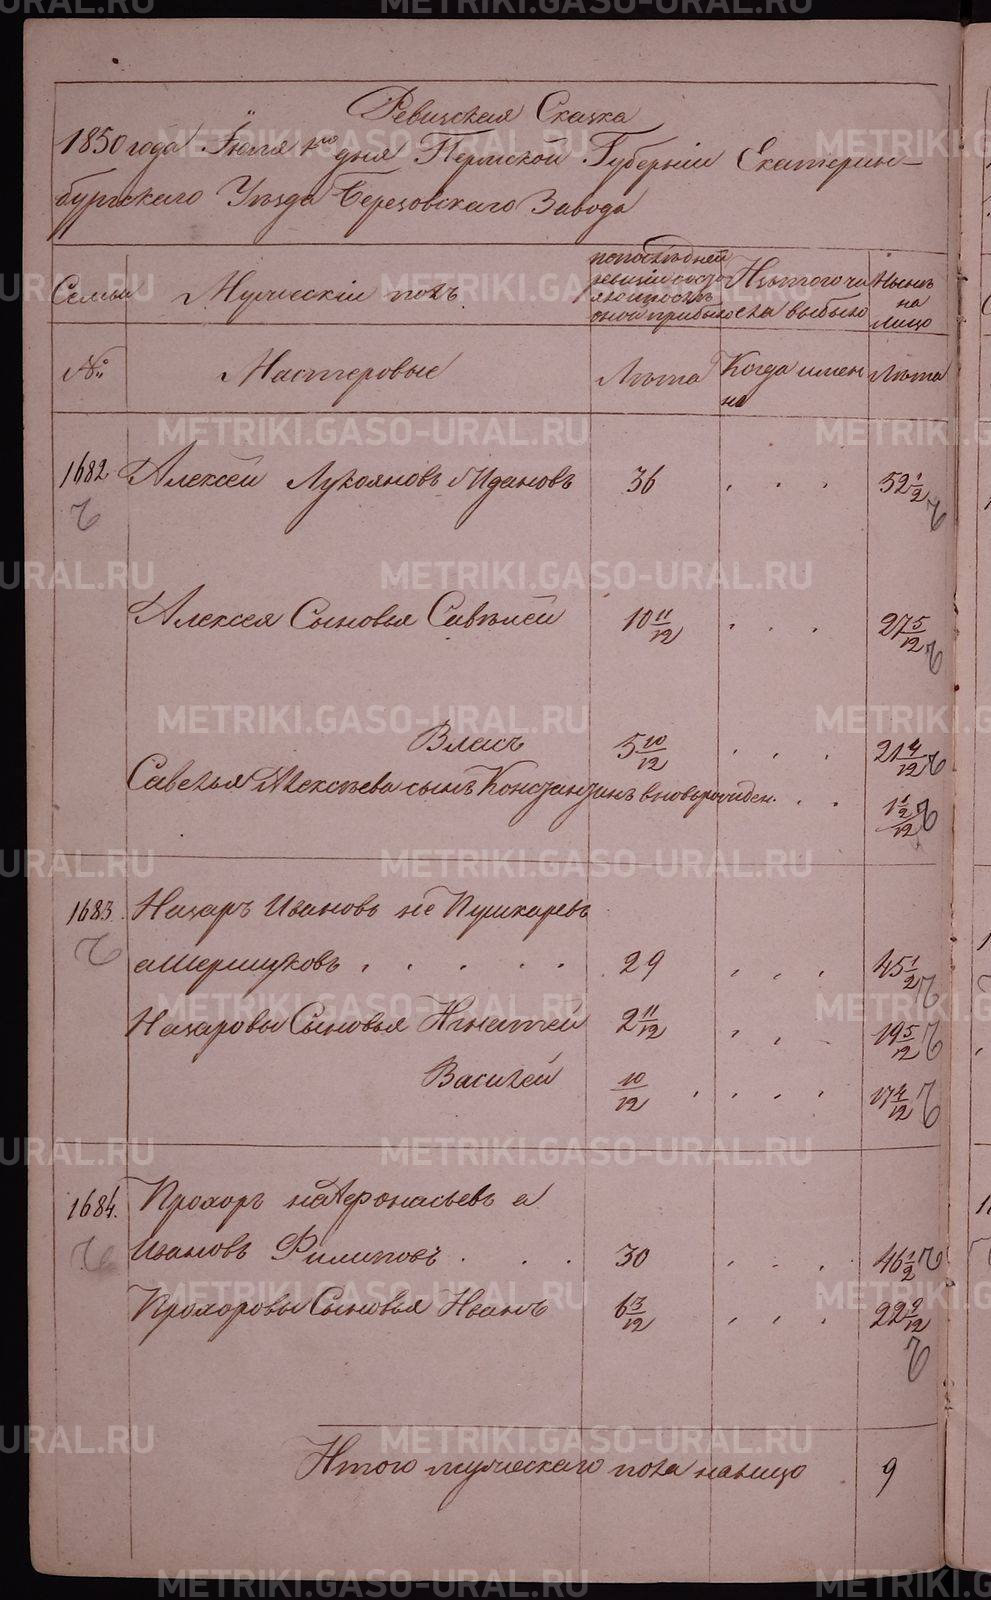 Ревизская Сказка
1850 года Іюля 1го дня Пермской Губерніи Екатерин-
бургскаго Уѣзда Березовскаго Завода
Семьи
Мужескій полъ
по последней
ревизіи состо
яло и послѣ
оной прибыло
Изтого чи
сла выбыло
Нынѣ
на
лицо
№
Мастеровые
Лѣта
Когда имен
но
Лѣта
1682 Алексей Лукояновъ Ждановъ 36 . . . 52 1/2
Алексея Сыновья Савѣлей 10 11/12 . . . 27 5/12
Власъ 5 10/12 . . . 21 4/12
Савелья Алексѣева сынъ Констанзинъ вновьрожден. . . 1 1/2/12
1683. Назаръ Ивановъ не Пушкаревъ
а Шершуковъ . . . . . 29 . . . 45 1/2
Назаровы Сыновья Игнатей 2 11/12 . . . 19 5/12
Василей 10/12 . . . . 17 4/12
1684. Прохоръ неАфонасьевъ а
Ивановъ Филиповъ . . . 30 . . . 46 1/2
Прохоровы Сыновья Иванъ 6 3/12 . . . 22 9/12
Итого мужескаго пола налицо 9
METRIKI.GASO-URAL.RU